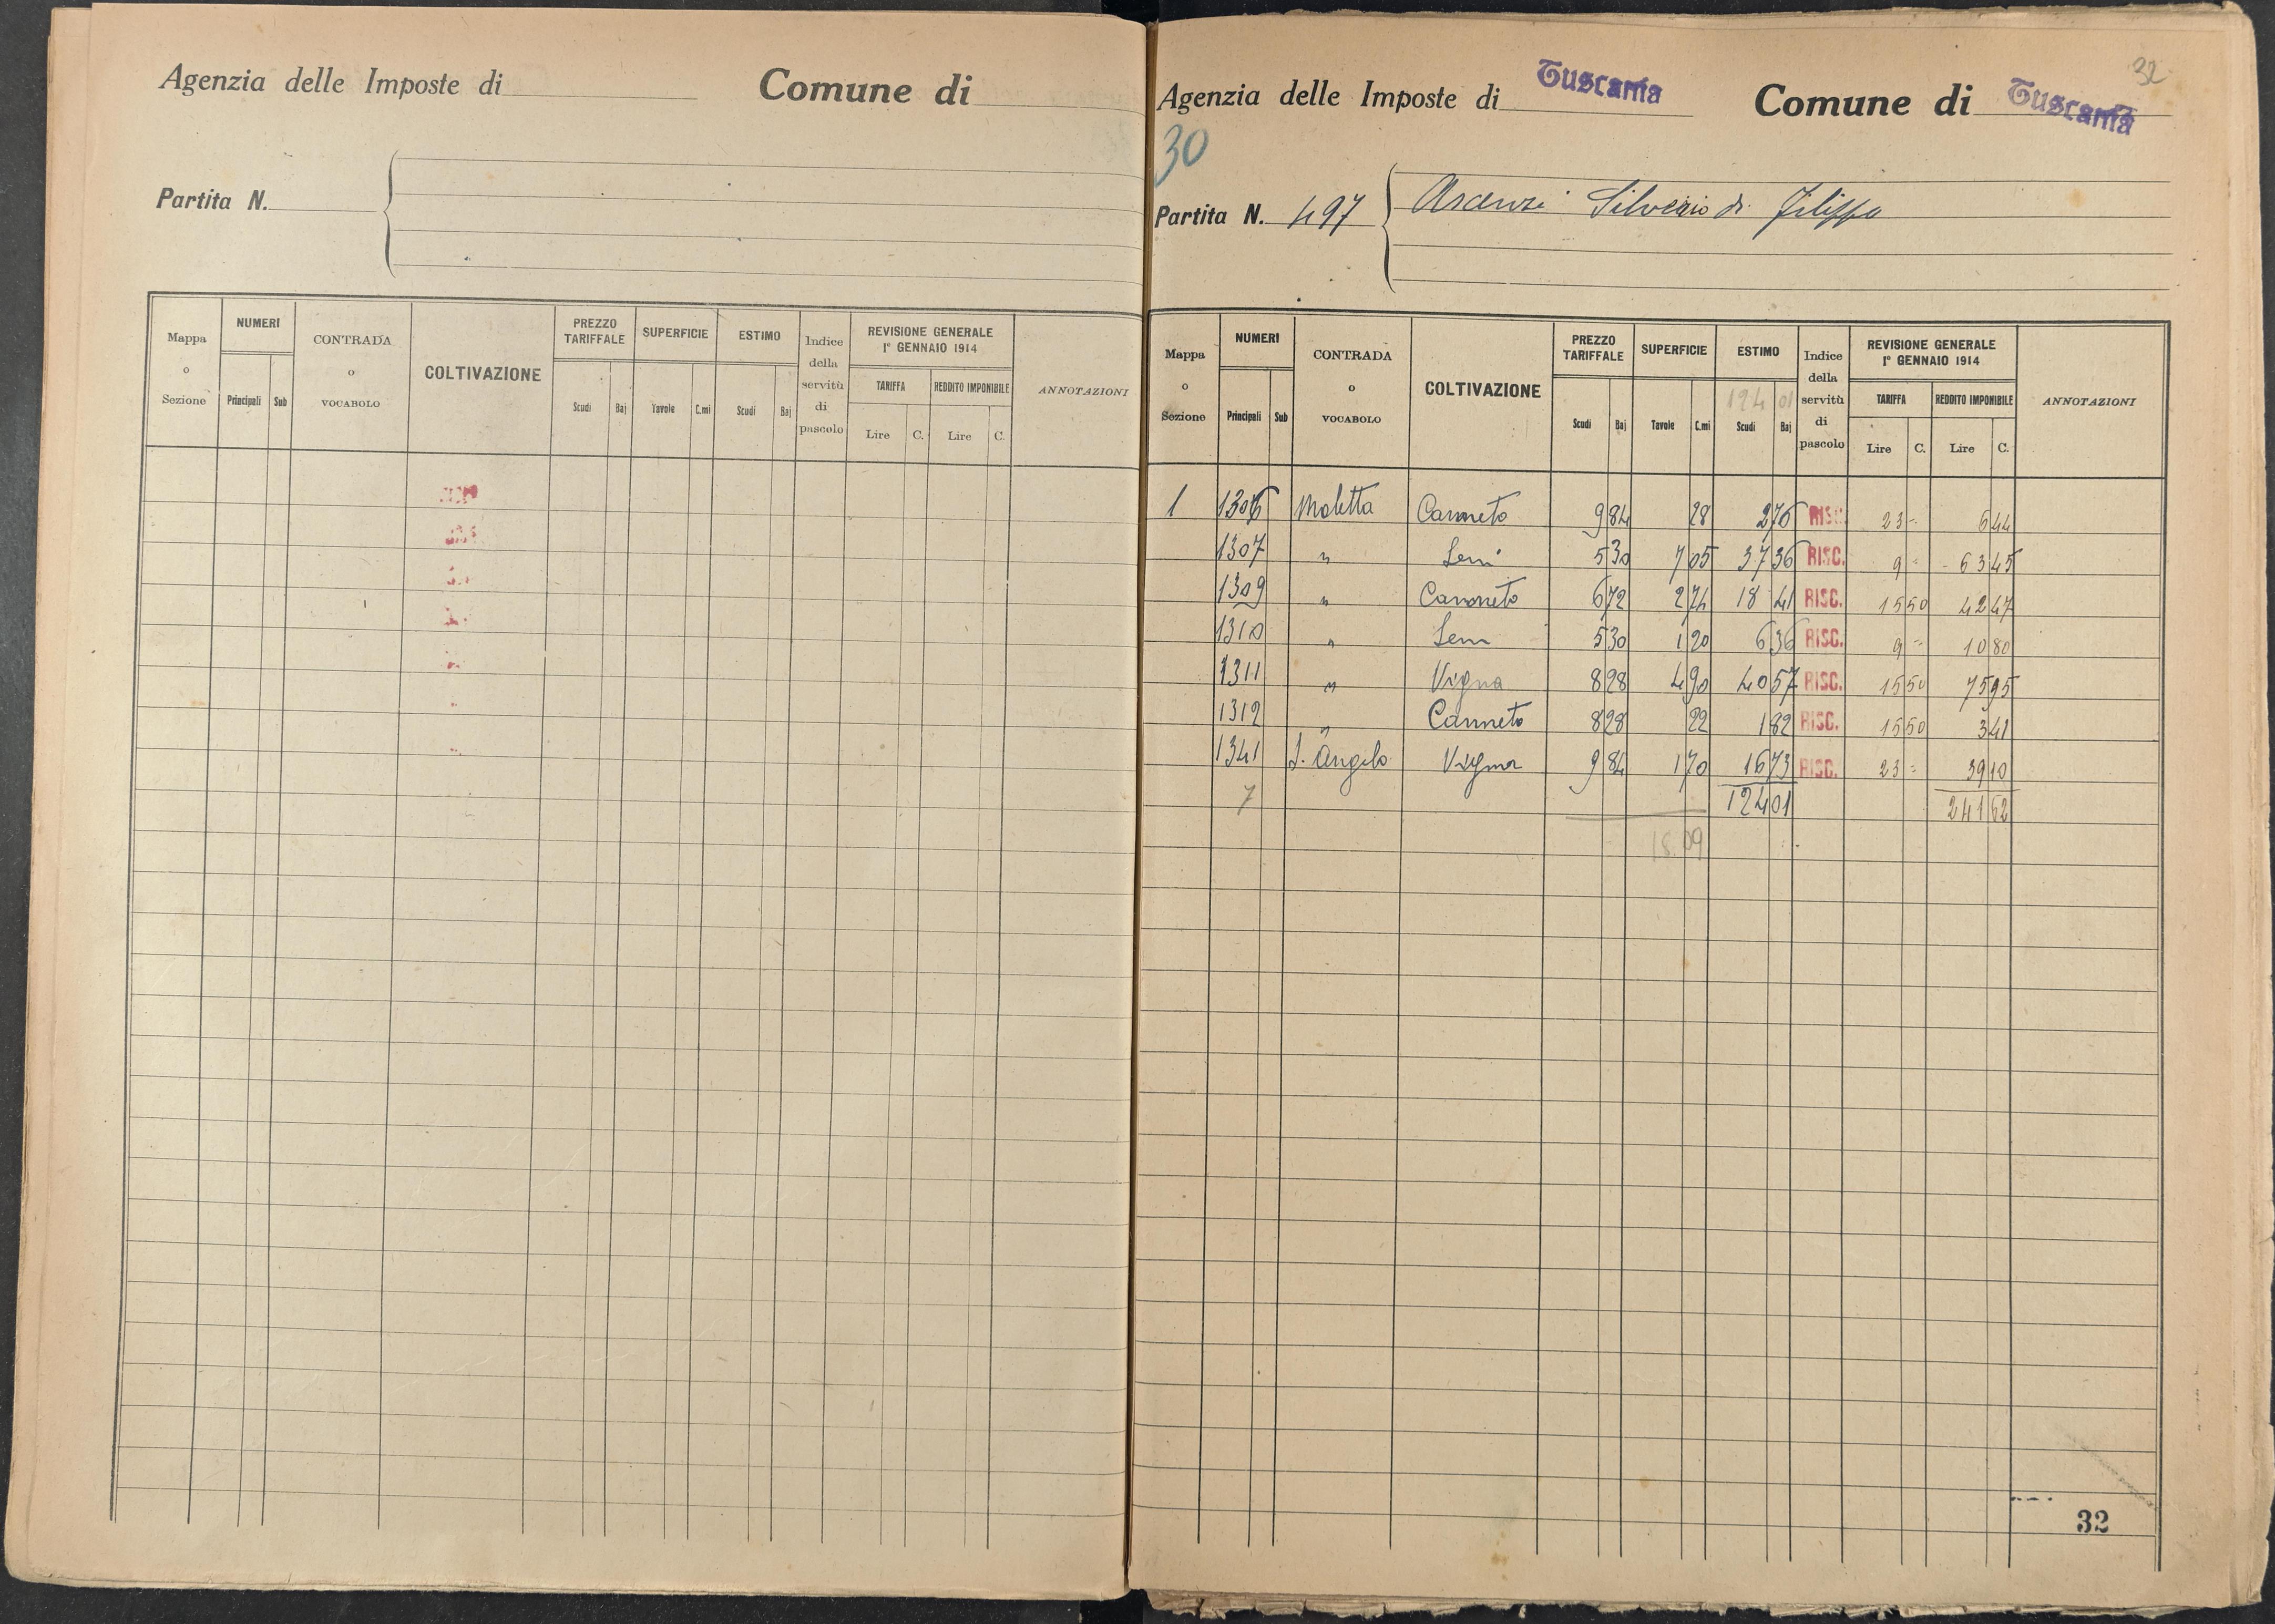 Agenzia delle Imposte di
Comune di
Partita N.
Mappa o Sezione
NUMERI
Principali Sub
CONTRADA o VOCABOLO
COLTIVAZIONE
PREZZO TARIFFALE
Scudi Baj
SUPERFICIE
Tavole C.mi
ESTIMO
Scudi Baj
Indice della servitù di pascolo
REVISIONE GENERALE 1° GENNAIO 1914
TARIFFA
Lire C.
REDDITO IMPONIBILE
Lire C.
ANNOTAZIONI
32
Agenzia delle Imposte di Tuscania
Comune di Tuscania
30
Partita N. 497 Ascenzi Silverio di Filippo
Mappa o Sezione
NUMERI
Principali Sub
CONTRADA o VOCABOLO
COLTIVAZIONE
PREZZO TARIFFALE
Scudi Baj
SUPERFICIE
Tavole C.mi
ESTIMO
124 01
Scudi Baj
Indice della servitù di pascolo
REVISIONE GENERALE 1° GENNAIO 1914
TARIFFA
Lire C.
REDDITO IMPONIBILE
Lire C.
ANNOTAZIONI
1 1306 Moletta Canneto 9 84 28 2 76 RISC. 23 - 6 44
1307 " Sem 5 30 7 05 37 36 RISC. 9 = 63 45
1309 " Canneto 6 72 2 74 18 41 RISC. 15 50 42 47
1310 " Sem 5 30 1 20 6 36 RISC. 9 = 10 80
1311 " Vigna 8 28 4 90 40 57 RISC. 15 50 75 95
1312 " Canneto 8 28 22 1 82 RISC. 15 50 3 41
1341 S. Angelo Vigna 9 84 1 70 16 73 RISC. 23 = 39 10
7 124 01 241 62
18.09
32